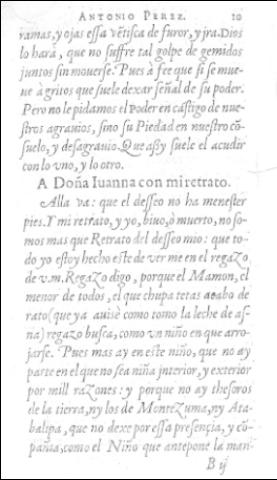 ANTONIO PEREZ. 10
ramas, y ojas essa vẽtisca de furor, y jra. Dios
lo hará, que no suffre tal golpe de gemidos
juntos sin mouerse. Pues à fee que si se mue-
ue à gritos que suele dexar señal de su poder.
Pero no le pidamos el Poder en castigo de nue-
stros agrauios, sino su Piedad en nuestro cõ-
suelo, y desagrauio. Que assy suele el acudir
con lo vno, y lo otro.
A Doña Iuanna con mi retrato.
Alla va: que el desseo no ha menester
pies. Y mi retrato, y yo, biuo, ò muerto, no so-
mos mas que Retrato del desseo mio: que to-
do yo estoy hecho este de ver me en el regazo
de v.m. Regazo digo, porque el Mamon, el
menor de todos, el que chupa tetas acabo de
rato (que ya auisè como tomo la leche de as-
na) regazo busca, como vn niño en que arro-
jarse. Pues mas ay en este niño, que no ay
parte en el que no sea niña jnterior, y exterior
por mill razones: y porque no ay thesoros
de la tierra, ny los de Montezuma, ny Ata-
balipa, que no dexe por essa presençia, y cõ-
pañia, como el Niño que antepone la man-
B ij